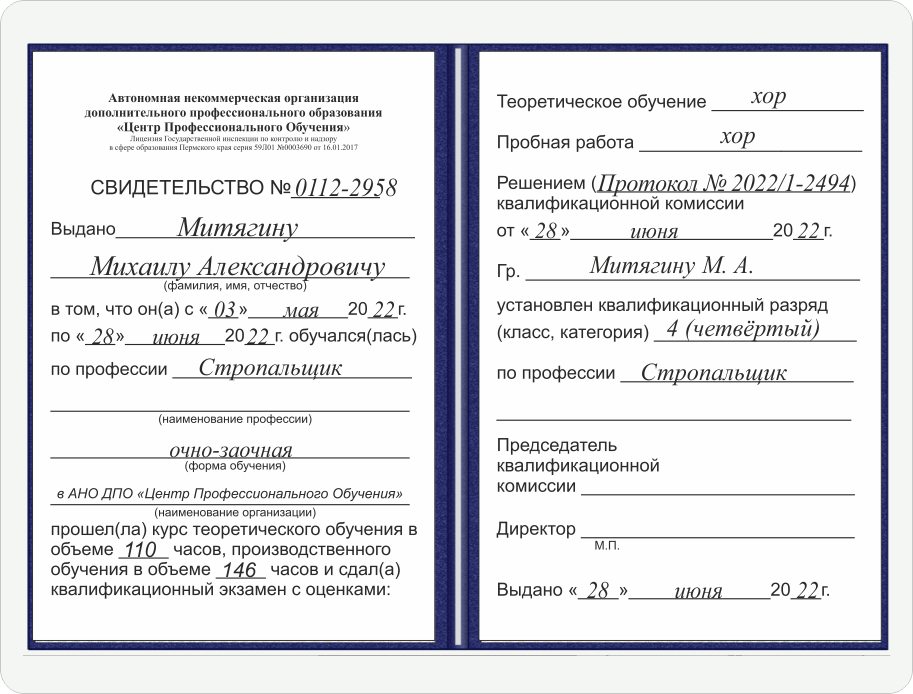 Автономная некоммерческая организация
дополнительного профессионального образования
«Центр Профессионального Обучения»
Лицензия Государственной инспекции по контролю и надзору
в сфере образования Пермского края серия 59Л01 №0003690 от 16.01.2017
СВИДЕТЕЛЬСТВО № 0112-2958
Выдано Митягину
Михаилу Александровичу
(фамилия, имя, отчество)
в том, что он(а) с «03» мая 2022г.
по «28» июня 2022 г. обучался(лась)
по профессии Стропальщик
(наименование профессии)
очно-заочная
(форма обучения)
в АНО ДПО «Центр Профессионального Обучения»
(наименование организации)
прошел(ла) курс теоретического обучения в
объеме 110 часов, производственного
обучения в объеме 146 часов и сдал(а)
квалификационный экзамен с оценками:
Теоретическое обучение хор
Пробная работа хор
Решением (Протокол № 2022/1-2494)
квалификационной комиссии
от «28» июня 2022г.
Гр. Митягину М. А.
установлен квалификационный разряд
(класс, категория) 4 (четвёртый)
по профессии Стропальщик
Председатель
квалификационной
комиссии
Директор
М.П.
Выдано «28» июня 2022г.